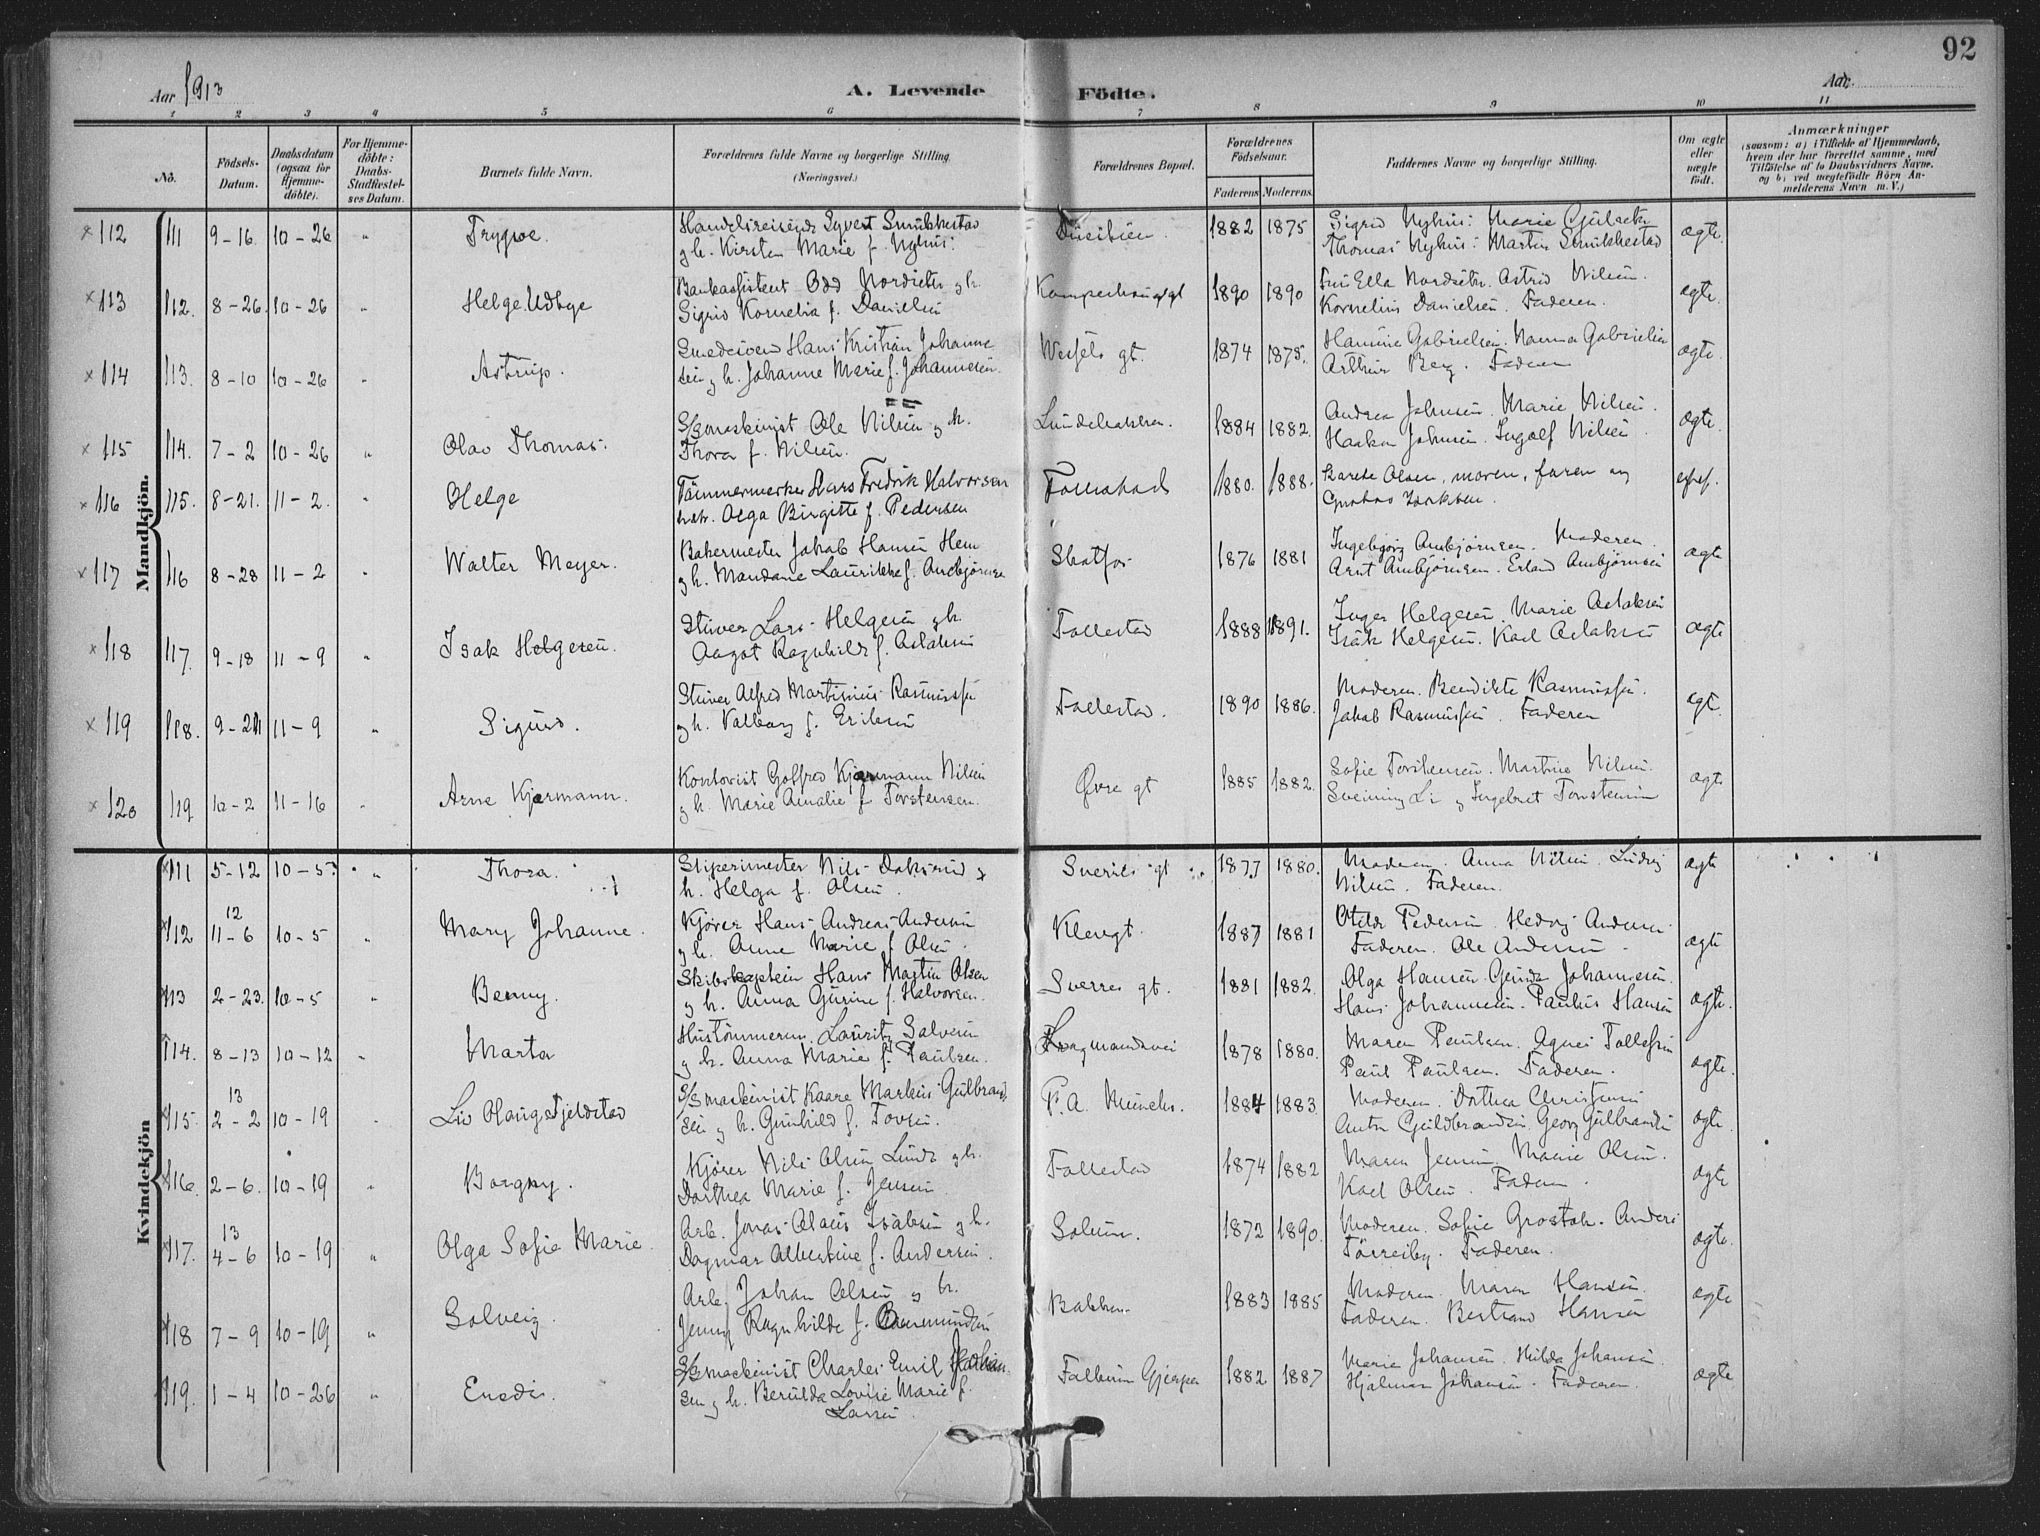 92
Aar 1913
A. Levende Födte.
Aar
1 2 3 4 5 6 7 8 9 10 11
No.
Födsels-Datum.
Daabsdatum (ogsaa for Hjemmedöbte).
For Hjemmedöbte: Daabs-Stadfæstelses Datum.
Barnets fulde Navn.
Forældrenes fulde Navne og borgerlige Stilling.
(Næringsvei.)
Forældrenes Bopæl.
Forældrenes Födselsaar.
Faderens Moderens.
Faddernes Navne og borgerlige Stilling.
Om ægte eller uægte födt.
Anmærkninger
(saasom: a) i Tilfælde af Hjemmedaab, hvem der har forrettet samme, med Tilföielse af to Daabsvidners Navne, og b) ved uægtefödte Börn Anmelderens Navn m. V.)
Mandkjön.
× 112 111 9-16 10-26 " Trygve. Handelsreisende Syvert Smukkestad 1882 1875 Sigrid Nyhus: Marie ægte
g h. Kirsten Marie f. Nyhus: Thomas Nyhus: Martin Smukkestad
× 113 112. 8-26. 10-26 " Helge Udbye Bankassistent Odd Nordseter g h. 1890 1890 Fru Ella Nordseter. Astrid Nilsen. ægte.
Sigrid Kornelia f. Danielsen Kornelius Danielsen. Faderen.
× 114 113. 8-10 10-26 " Astrup. Smedsvend Hans Kristian Johanne Wessels gt. 1874 1875. Hansine Gabrielsen. Nanna Gabrielsen ægte.
sen g h. Johanne Marie f. Johannesen. Arthur Berg. Faderen
× 115 114. 7-2 10-26 " Olav Thomas. S/S maskinist Ole Nilsen g h. Lundebakken. 1884 1882. Andrea Johnsen. Marie Nilsen. ægte.
Thora f. Nilsen. Haakon Johnsen. Ingolf Nilsen
× 116 115. 8-21. 11-2. " Helge Tömmermerker Lars Fredrik Halvorsen 1880. 1888. Karete Olsen, moren, faren og
hstr. Olga Birgitte f. Pedersen Gustav Isaksen.
× 117 116 8-28 11-2 " Walter Meyer. Bakermester Jakob Hansen Hem Skotfos 1876 1881 Ingebjørg Ambjørnsen. Moderen. ægte
g h. Mandane f. Ambjørnsen Arnt Ambjørnsen. Erland Ambjørnsen
× 118 117 9-18 11-9 " Isak Helgesen. Stuver Lars Helgesen g h. Follestad 1888 1891. Inger Helgesen, Marie Aslaksen ægte
Aagot Ragnhild f. Aslaksen Isak Helgesen. Karl Aslaksen
× 119 118. 9-21 11-9 " Sigurd. Stuver Alfred Martinius Rasmussen Follestad. 1890 1886. Moderen. Bendikte Rasmussen. ægt.
g h. Valborg f. Eriksen Jakob Rasmussen. Faderen
× 120 119 10-2 11-16 " Arne Kjærmann. Kontorist Gotfred Kjærmann Nilsen Øvre gt 1885 1882. Sofie Torstensen. Martine Nilsen. ægte
g h. Marie Amalie f. Torstensen. Sveinung Li g Ingebret Torstensen
Kvindekjön
111 5-12 10-5 " Thora. Nils g Sverres gt. 1877 1880. Moderen. Anna Nilsen. Ludvig ægte
h. Helga f. Olsen. Nilsen. Faderen.
12
112 11-6 10-5 " Mary Johanne. Kjører Hans Andreas Andersen Klevgt. 1887 1881 Otilde Pedersen. Hedvig Andersen ægte
g h. Anne Marie f. Olsen. Faderen. Ole Andersen
113 2-23. 10-5 " Benny. Skibskaptein Hans Martin Olsen Sverres gt. 1881 1882. Olga Hansen. Gunda Johannesen. ægte.
g h. Anna Gurine f. Halvorsen. Hans Johannesen. Paulus Hansen
114. 8-13 10-12 " Marta Hustömmerm. Lauritz Salvesen 1878 1880. Maren Paulsen. Agnes Tollefsen ægte.
g h. Anna Marie f. Paulsen. Paul Paulsen. Faderen.
13
115 2-2 10-19 Liv Haugefjeldstad S/S maskinist Kaare Markus Gulbrand P. A. Munchs. 1884 1883. Moderen. Dorthea Christensen ægte.
sen g h. Gunhild f. Tovsen. Anton Guldbrandsen. Georg Gulbrandsen
116. 2-6. 10-19 " Borgny. Kjører Nils Olsen Lunde g h. Follestad 1874 1882 Maren Jensen, Marie Olsen. ægte
Dorthea Marie f. Jensen. Karl Olsen. Faderen.
13
117. 4-6 10-19 " Olga Sofie Marie. Arb. Jonas Olaus Isaksen g h. Solum. 1872 1890. Moderen. Sofie Grostok. Anders ægte.
Dagmar Albertine f. Andersen. Faderen.
118 7-9 10-19 " Solveig. Arb. Johan Olsen g h. Bakken. 1883 1885 Moderen. Maren Hansen. ægte
Jenny Ragnhilde f. Faderen. Bertrand Hansen
119. 1-4 10-26 " S/S maskinist Charles Emil Johan- Falkum Gjerpen 1882 1887 Marie Johansen. Hilda Johansen. ægte
sen g h. Berulda Lovise Marie f. Hjalmar Johansen. Faderen.
Larsen.